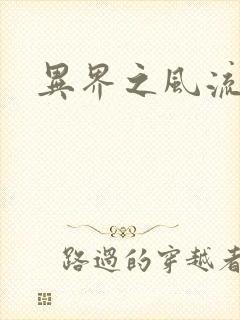 異界之風流
路過的穿越者